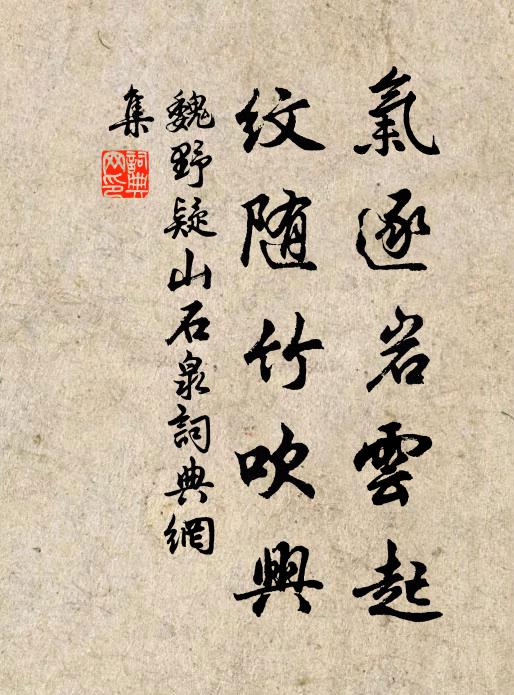 氣逐岩雲起
紋随竹吹興
魏野疑山石泉詞典網
集
詞典網印